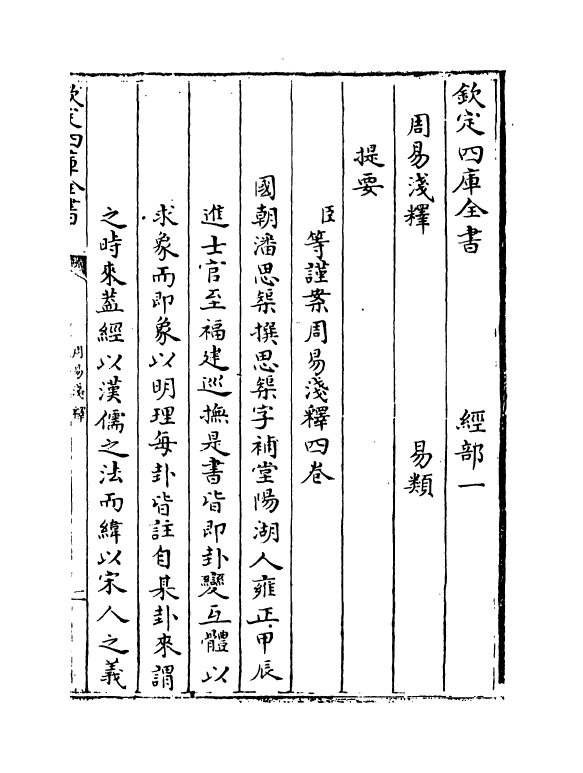 欽定四庫全書　經部一
周易淺釋　易類
提要
臣等謹案周易淺釋四卷
國朝潘思榘撰思榘字補堂陽湖人雍正甲辰
進士官至福建巡撫是書皆即卦變互體以
求象而即象以明理每卦皆註自某卦來謂
之時來蓋經以漢儒之法而緯以宋人之義
欽定四庫全書
周易淺釋